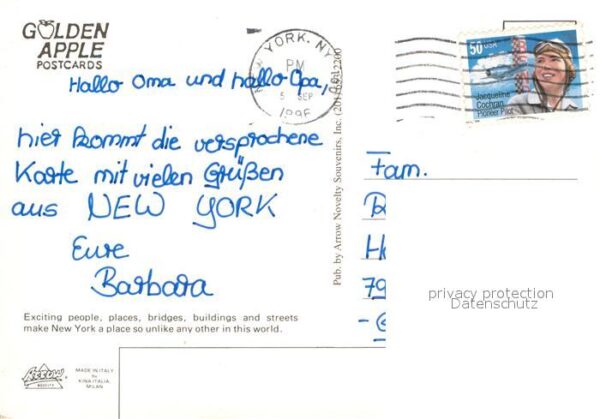 GOLDEN
APPLE
POSTCARDS
Hallo Oma und hallo Opa,
hier kommt die versprochene
Karte mit vielen Grüßen
aus NEW YORK
Eure
Barbara
Exciting people, places, bridges, buildings and streets
make New York a place so unlike any other in this world.
ARROW
MADE IN ITALY
by
KINA ITALIA
MILAN
Pub. by Arrow Novelty Souvenirs, Inc.
YORK, NY
PM
5 SEP
1996
50 USA
Jacqueline
Cochran
Pioneer Pilot
Fam.
79
privacy protection
Datenschutz